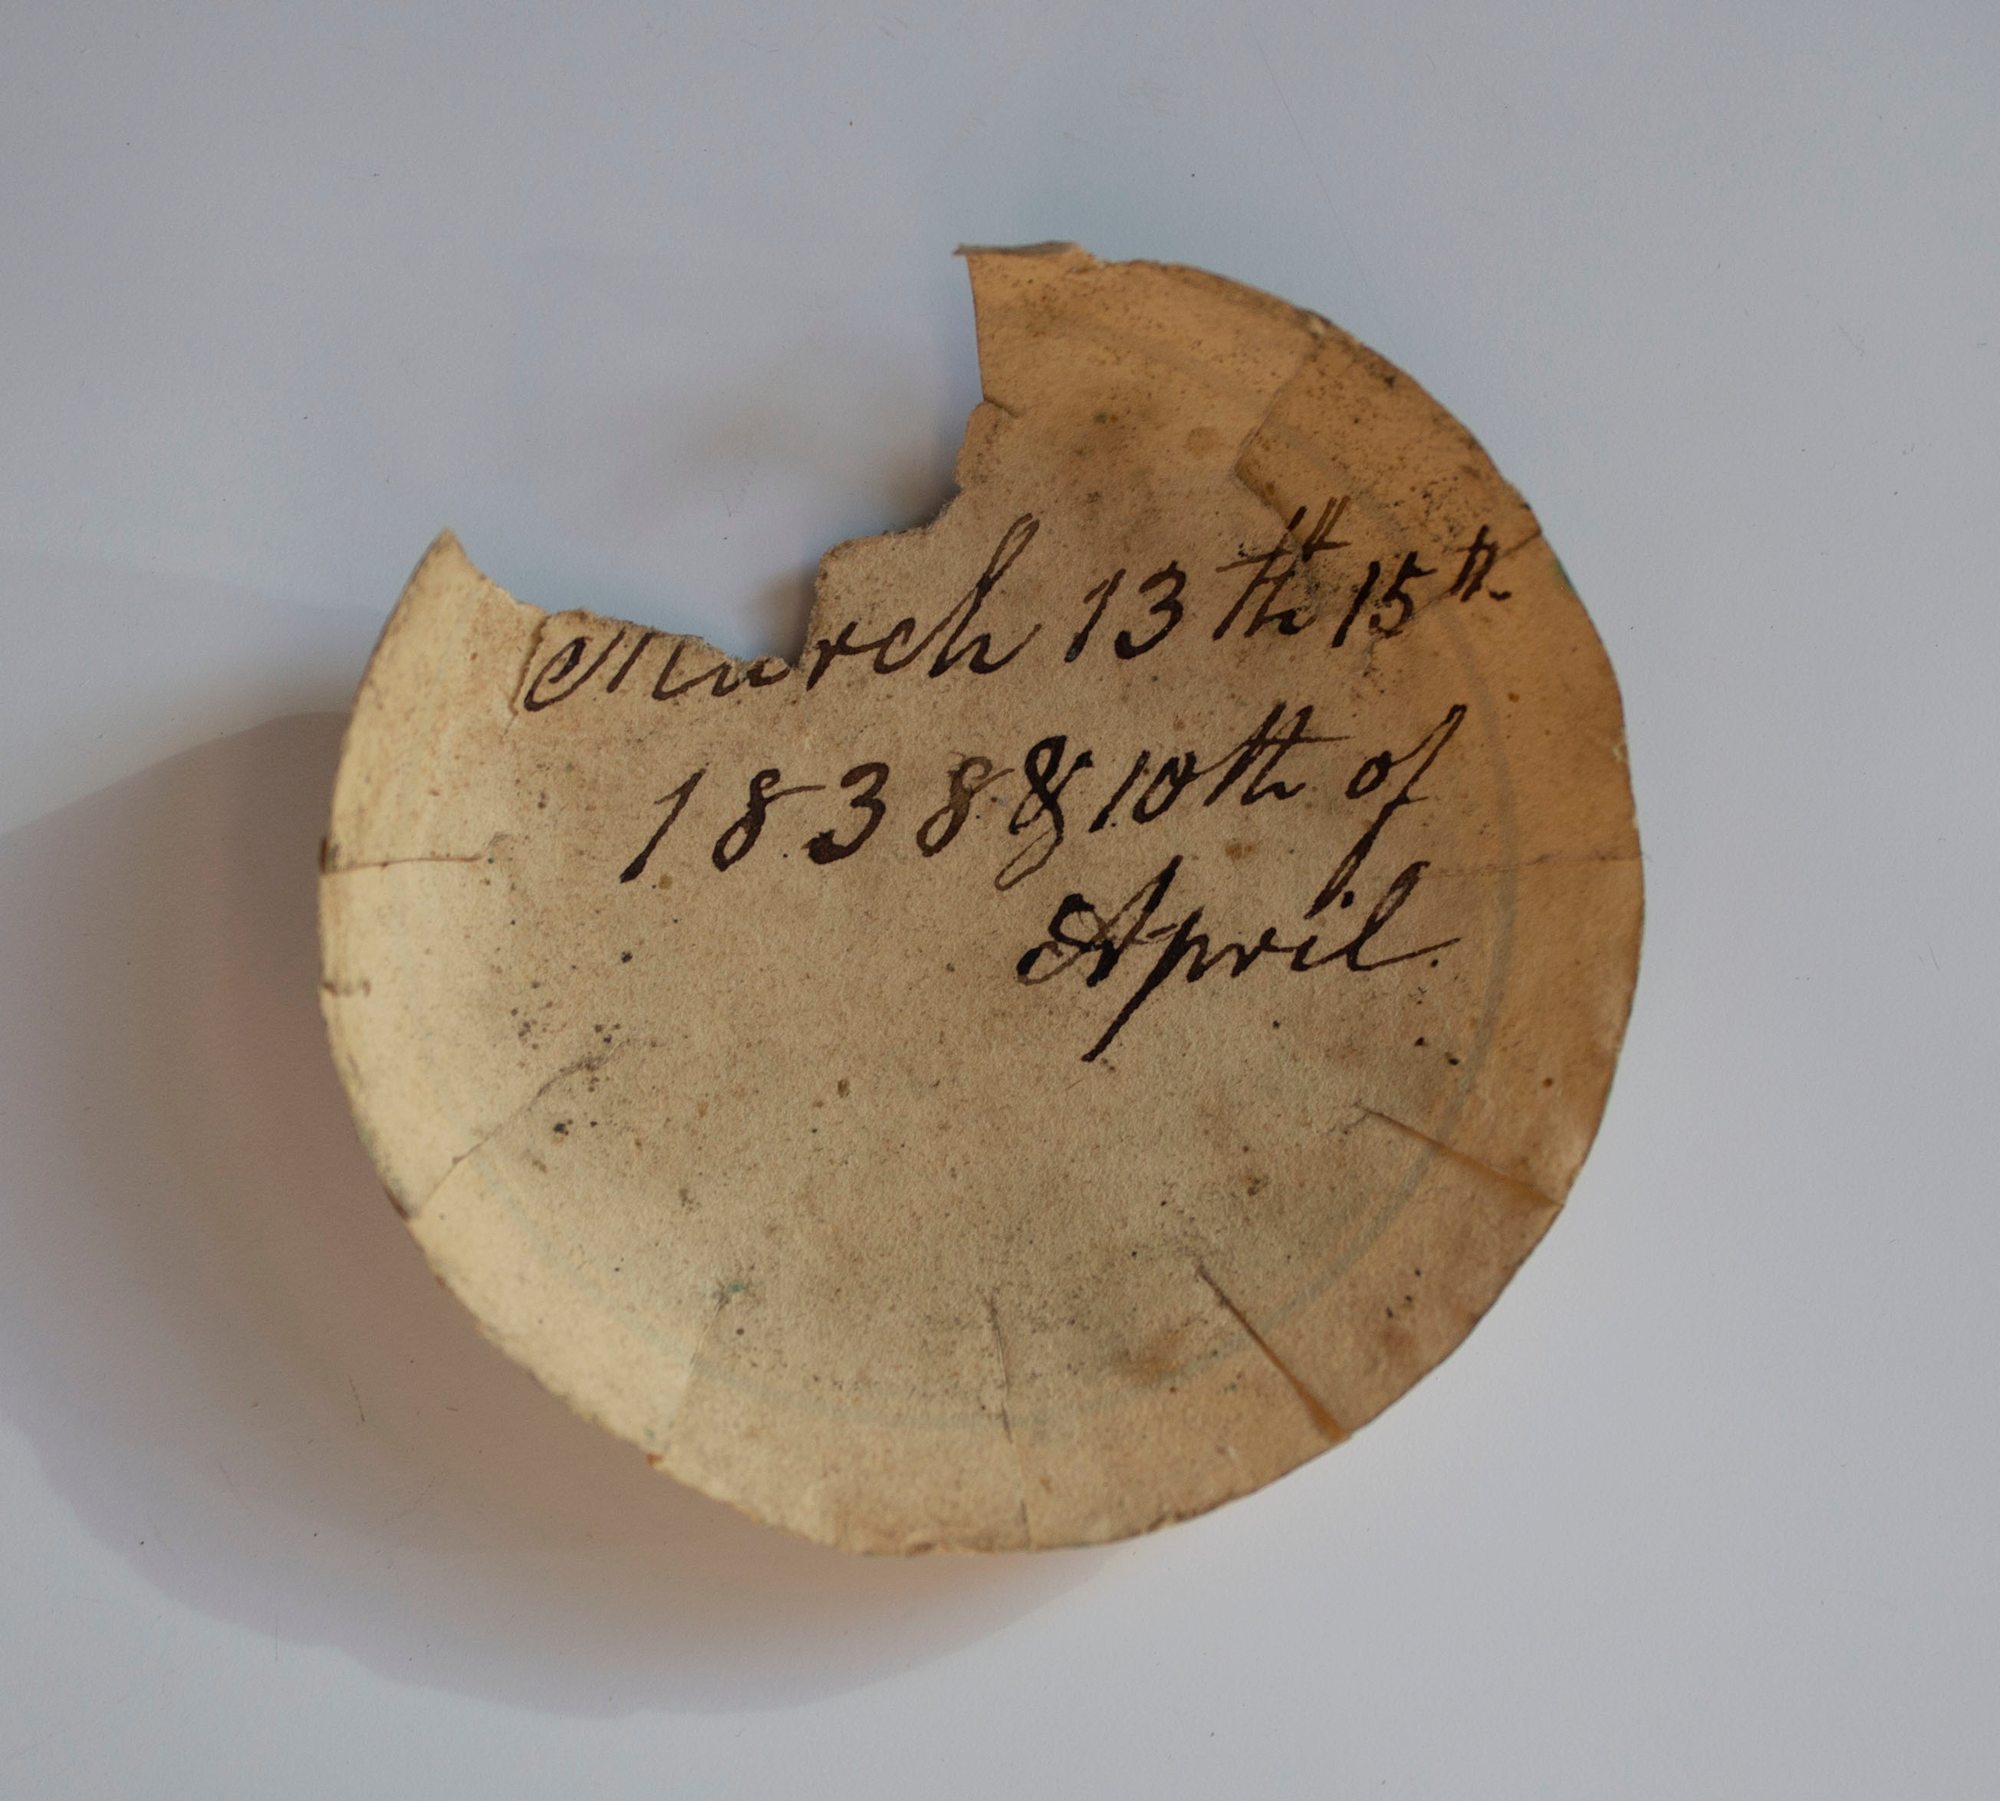 March 13th 15th
1838 & 10th of
April.